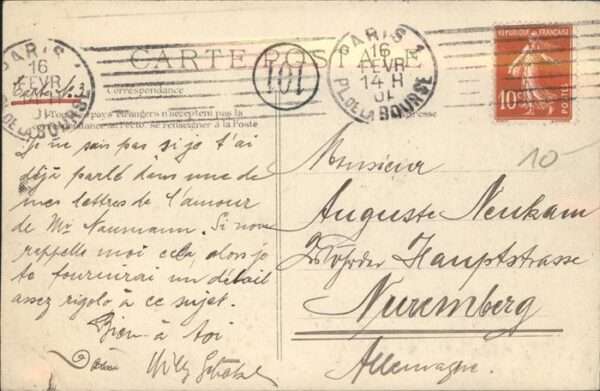 PARIS 1
16
FEVR
PL. DE LA BOURSE
PARIS 1
16
FEVR
14 H
07
PL. DE LA BOURSE
CARTE POSTALE
101
RÉPUBLIQUE FRANÇAISE
10
POSTES
Carte No 3.
Correspondance
Tous les pays étrangers n'acceptent pas la
Correspondance au recto, se renseigner à la Poste
10-
Je ne sais pas si je t'ai
déjà parlé dans une de
mes lettres de l'amour
de Mr Naumann. Si non
rappelle moi cela, alors je
te fournirai un détail
assez rigolo à ce sujet.
Bien à toi
Willy
Monsieur
Auguste Neukam
Hauptstrasse
Nuremberg
Allemagne.